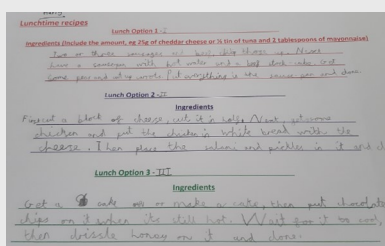 Lunchtime recipes
Lunch Option 1 -
Ingredients (Include the amount, eg 25g of cheddar cheese or ½ tin of tuna and 2 tablespoons of mayonnaise)
Two or three sausages
have a saucepan with hot water and a beef stock cube. Get
some peas and
Lunch Option 2 - II
Ingredients
First cut a block of cheese, cut it in half. Next, get some
chicken and put the chicken in white bread with the
cheese. Then place the salami and pickles in it and
Lunch Option 3 - III
Ingredients
Get a cake or make a cake, then put chocolate
chips on it when its still hot. Wait for it to cool,
then drissle honey on it and done.